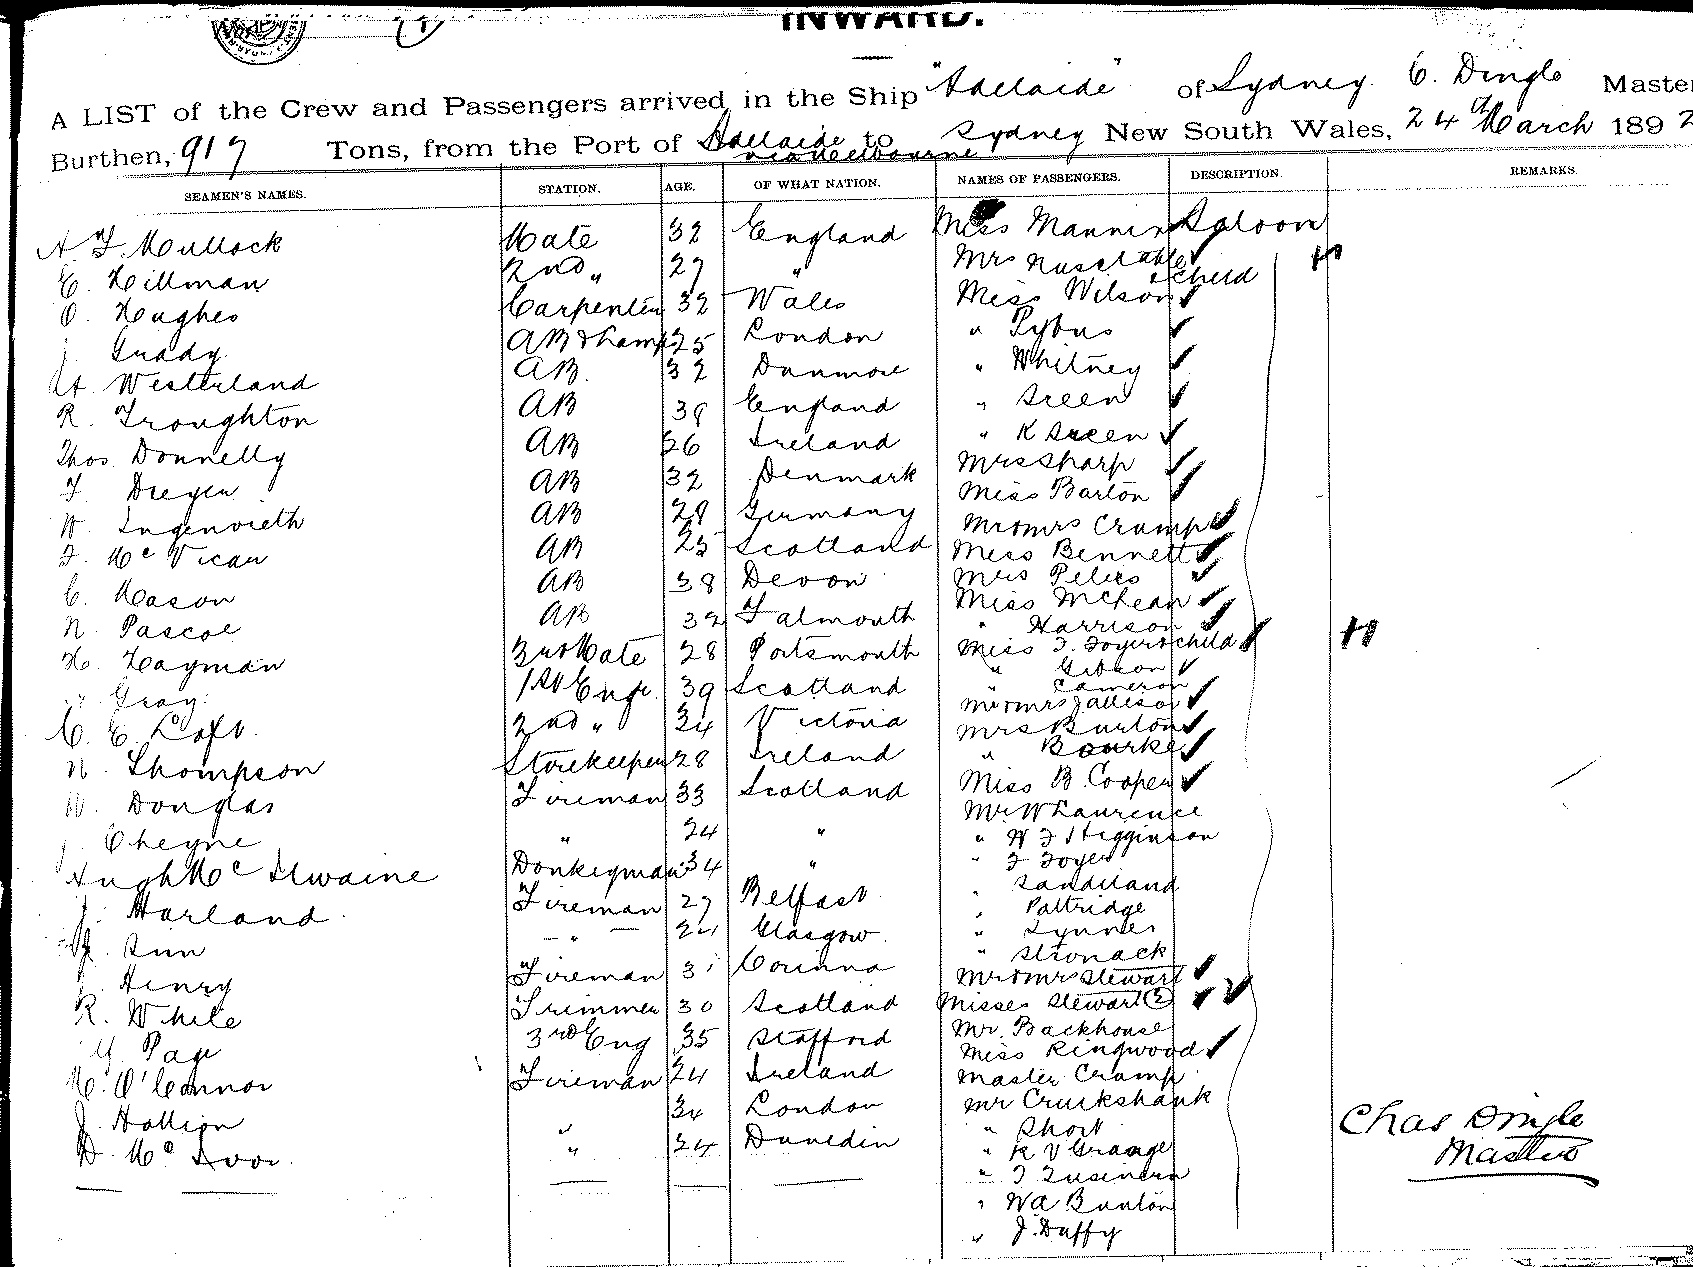 INWARD.
A LIST of the Crew and Passengers arrived in the Ship "Adelaide" of Sydney. C. Dingle Master
Burthen, 917 Tons, from the Port of Adelaide to Sydney New South Wales, 24th March 1892
via Melbourne
SEAMEN'S NAMES. STATION. AGE. OF WHAT NATION. NAMES OF PASSENGERS. DESCRIPTION. REMARKS.
A. J. Mullock Mate 32 England Miss Mannin Saloon
E. Hillman 2nd " 27 " Mrs & child
O. Hughes Carpenter 32 Wales Miss Wilson
J. Grady AB & Lamps 25 London " Pybus
A. Westerland AB. 32 Danmore " Whitney
R. Troughton AB 39 England " Green
Thos. Donnelly AB 26 Ireland " K Green
F. Dreyer AB 32 Denmark Mrs Sharp
W. AB 28 Germany Miss Barton
J. McVicar AB 25 Scotland Mr & Mrs Cramp
C. Mason AB 38 Devon Miss Bennett
N. Pascoe AB 32 Falmouth Mrs Peters
H. Hayman 3rd Mate 28 Portsmouth Miss McLean
Gray 1st Engr. 39 Scotland " Harrison
C. E. Loft. 2nd " 24 Victoria Miss F. Foyer & child
W. Thompson Storekeeper 28 Ireland " Gibson
W. Douglas Fireman 33 Scotland " Cameron
J. Cheyne " 24 " Mr & Mrs
Hugh McIlwaine Donkeyman 34 " Mrs Burton
J. Harland Fireman 27 Belfast " Bourke
J. Gunn " 24 Glasgow. Miss B. Cooper
J. Henry Fireman 31 Mr W Laurence
R. White Trimmer 30 Scotland " W F Higginson
Page 3rd Eng 35 Stafford " F Foyer
M. O'Connor Fireman 24 Ireland " Sandiland
J. Hallion 34 London " Paltridge
D. McIvor. " 24 Dunedin " Symnes
" Stronack
Mr & Mrs Stewart
Misses Stewart (2)
Mr. Backhouse
Miss Ringwood
Master Cramp
Mr Cruikshank
" Short
" R V Grange
" T
" W A Bunton
" J. Duffy
Chas Dingle
Master